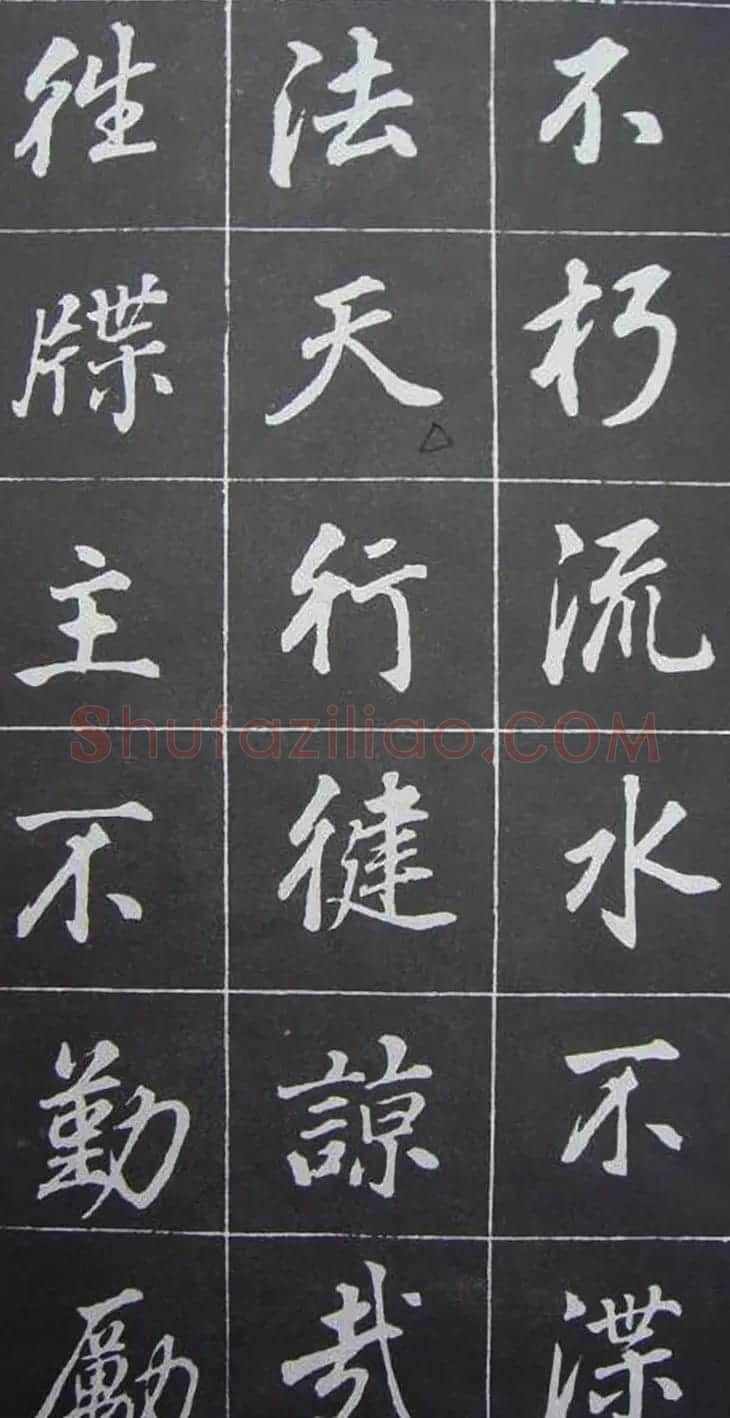 不朽流水不渫
法天行徤諒哉
徃牒主不勤勵
Shufaziliao.COM